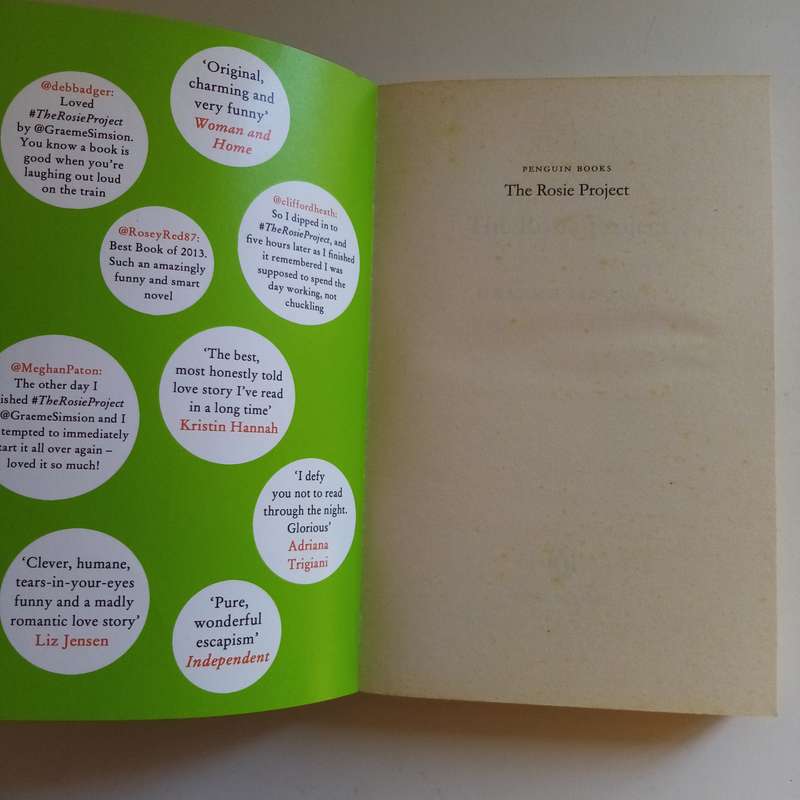 @debbadger:
Loved
#TheRosieProject
by @GraemeSimsion.
You know a book is
good when you're
laughing out loud
on the train
'Original,
charming and
very funny'
Woman and
Home
@RoseyRed87:
Best Book of 2013.
Such an amazingly
funny and smart
novel
@cliffordheath:
So I dipped in to
#TheRosieProject, and
five hours later as I finished
it remembered I was
supposed to spend the
day working, not
chuckling
@MeghanPaton:
The other day I
ished #TheRosieProject
@GraemeSimsion and I
tempted to immediately
tart it all over again –
loved it so much!
'The best,
most honestly told
love story I've read
in a long time'
Kristin Hannah
'I defy
you not to read
through the night.
Glorious'
Adriana
Trigiani
'Clever, humane,
tears-in-your-eyes
funny and a madly
romantic love story'
Liz Jensen
'Pure,
wonderful
escapism'
Independent
PENGUIN BOOKS
The Rosie Project